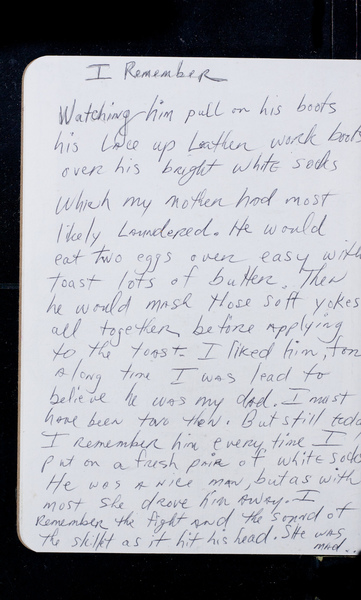 I Remember
Watching him pull on his boots
his Lace up Leather work boots
over his bright white socks
which my mother had most
likely Laundered. He would
eat two eggs over easy with
toast lots of butter. Then
he would mash those soft yokes
all together before applying
to the toast. I liked him, for
a long time I was lead to
believe he was my dad. I must
have been two then. But still today
I remember him every time I
put on a fresh pair of white socks
He was a nice man, but as with
most she drove him away. I
remember the fight and the sound of
the skillet as it hit his head. She was
mad..